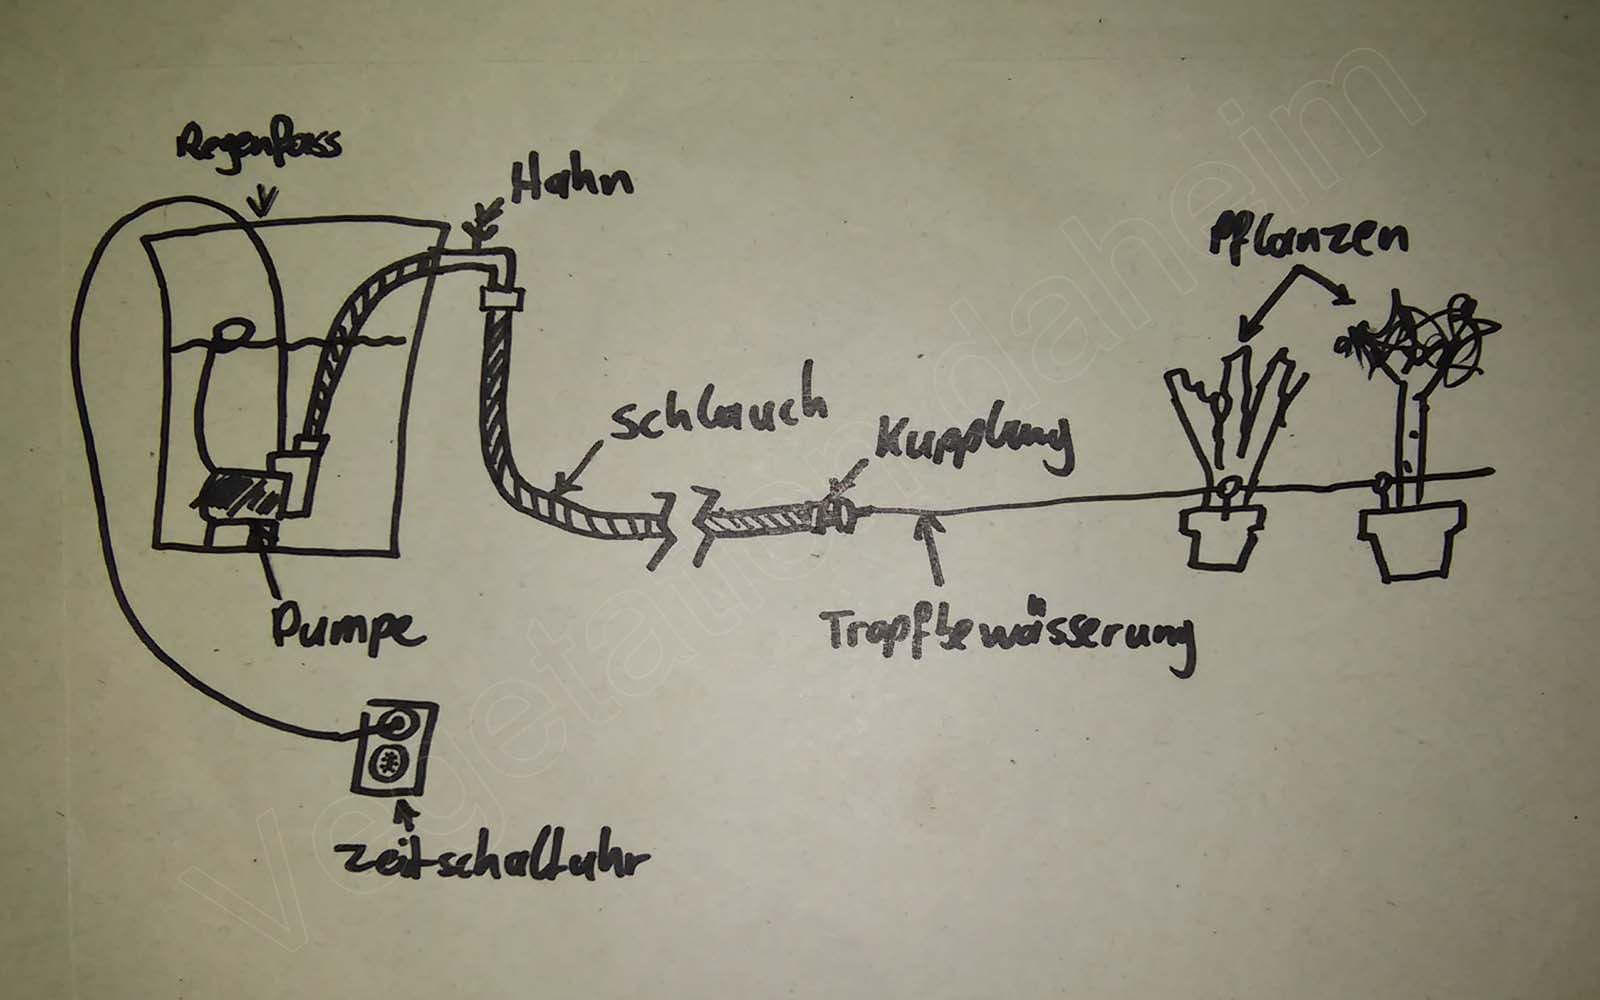 Regenfass
Hahn
Pflanzen
Schlauch
Kupplung
Tropfbewässerung
Pumpe
Zeitschaltuhr
vegetationdaheim